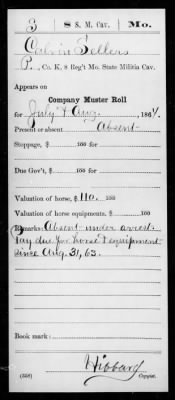 S | 8 | S. M. Cav. | Mo.
Calvin Sellers
P., Co. K, 8 Reg't Mo. State Militia Cav.
Appears on
Company Muster Roll
for July & Aug., 1864.
Present or absent Absent
Stoppage, $ 100 for
Due Gov't, $ 100 for
Valuation of horse, $ 110. 100
Valuation of horse equipments, $ 100
Remarks: Absent under arrest.
Pay due for horse & equipment
since Aug. 31, 63.
Book mark:
Hibbard
(358) Copyist.